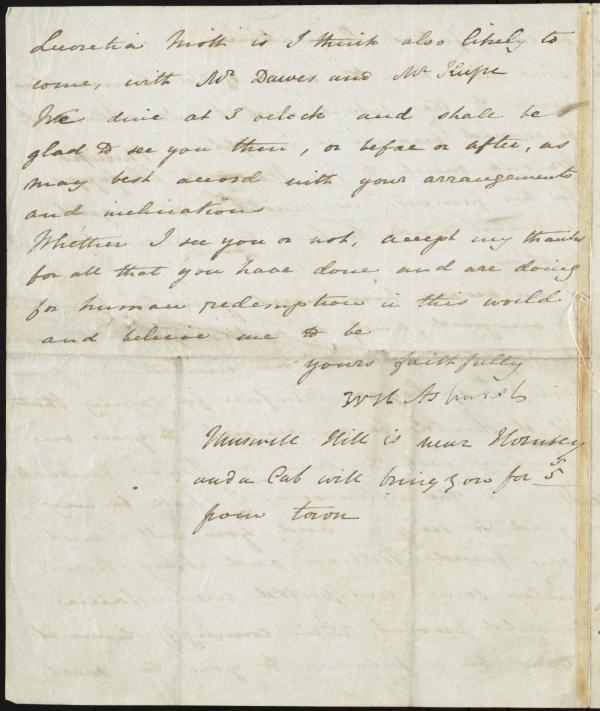 Lucretia Mott is I think also likely to
come, with Mr Dawes and Mr Keepe
We dine at 3 oclock and shall be
glad to see you then, or before or after, as
may best accord with your arrangements
and inclinations
Whether I see you or not, accept my thanks
for all that you have done and are doing
for human redemption in this world
and believe me to be
yours faithfully
W H Ashurst
Muswell Hill is near Hornsey
and a Cab will bring you for 5/
from town